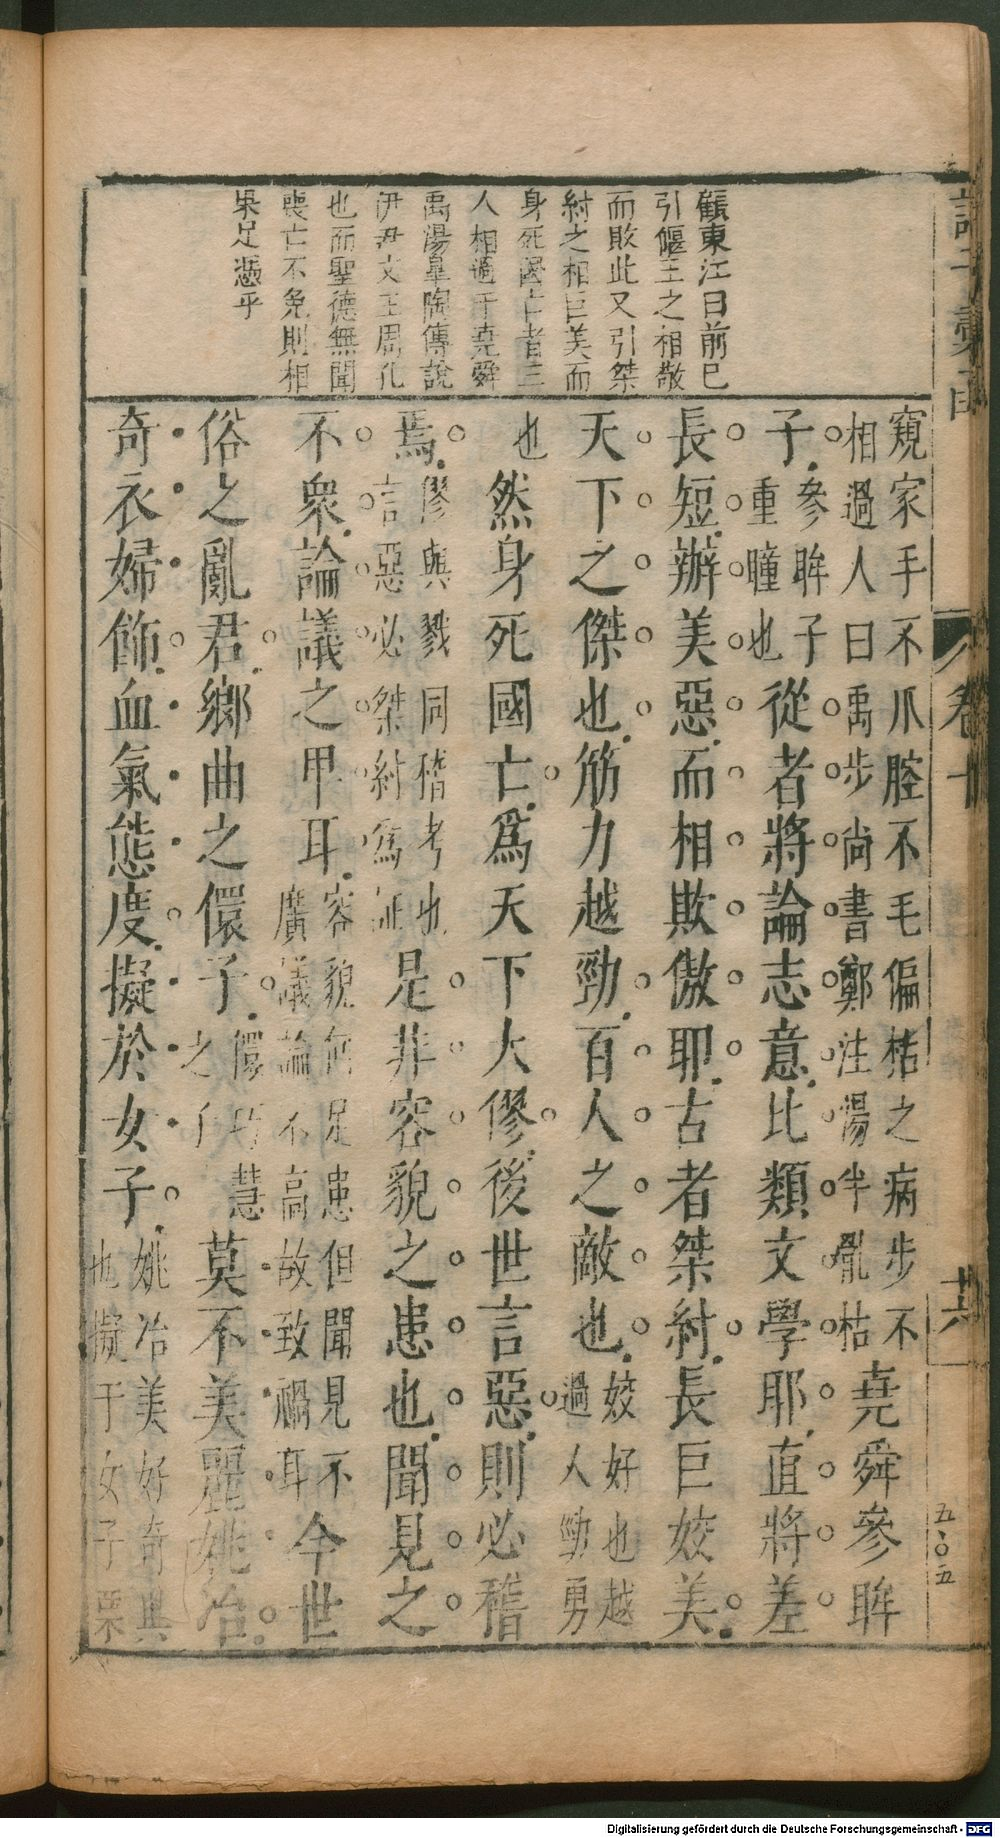 諸子彙函
卷十
十六
五〇五
顧東江曰前已
引偃王之相敬
而敗此又引桀
紂之相巨美而
身死國亡者三
人相過于堯舜
禹湯皐陶傅說
伊尹文王周孔
也而聖德無聞
喪亡不免則相
果足憑乎
窺家手不爪腔不毛偏枯之病步不相過人曰禹步尚書鄭注湯半亂枯堯舜參眸
子參眸子重瞳也從者將論志意比類文學耶直將差
長短辦美惡而相欺傲耶古者桀紂長巨姣美
天下之傑也筋力越勁百人之敵也姣好也越過人勁勇
也然身死國亡爲天下大僇後世言惡則必稽
焉僇與戮同稽考也言惡必桀紂爲証是非容貌之患也聞見之
不衆論議之甲耳容貌何足患但聞見不廣議論不高故致禍耳今世
俗之亂君鄉曲之儇子儇巧慧之子莫不美麗姚冶
奇衣婦飾血氣態度擬於女子姚冶美好奇與也擬于女子栗
Digitalisierung gefördert durch die Deutsche Forschungsgemeinschaft - DFG